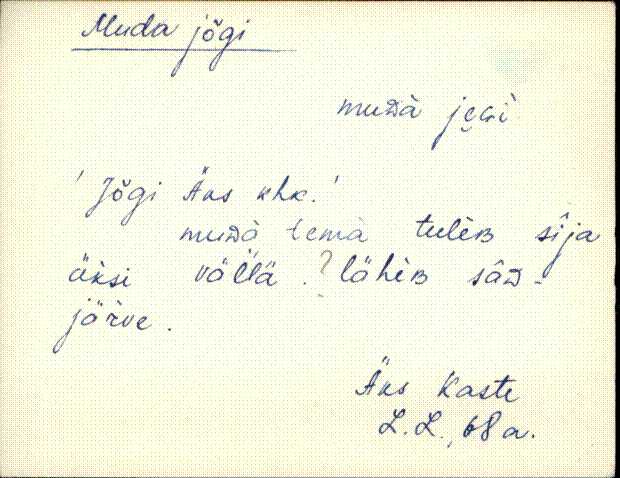 Muda jõgi
muᴅà jeɢì
'Jõgi Äks khk.'
muᴅà temà tulèʙ sîja
äksi vällä . ? lähèʙ sâᴅ-
järve .
Äks Kaste
L. L. , 68 a.